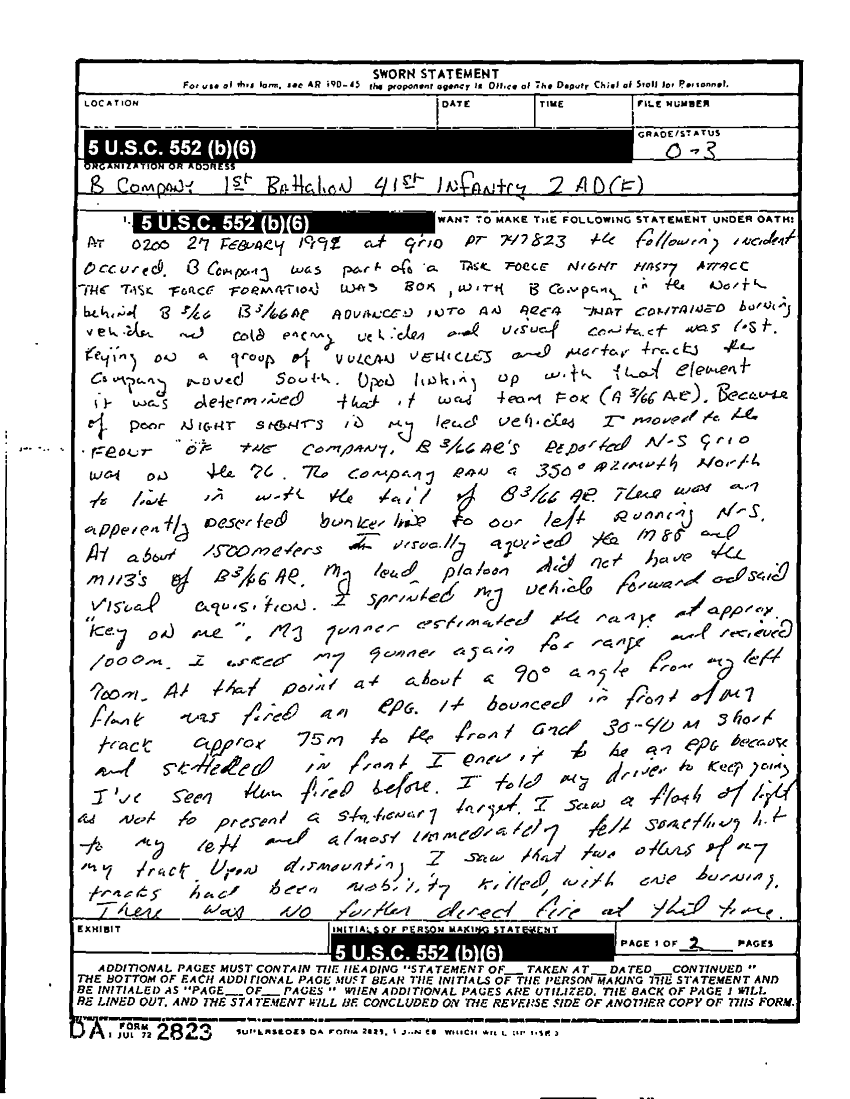 SWORN STATEMENT
For use of this form, see AR 190-45 the proponent agency is Office of The Deputy Chief of Staff for Personnel.
LOCATION
DATE
TIME
FILE NUMBER
5 U.S.C. 552 (b)(6)
GRADE/STATUS
O-3
ORGANIZATION OR ADDRESS
B Company 1st Battalion 41st Infantry 2 AD(E)
I, 5 U.S.C. 552 (b)(6) WANT TO MAKE THE FOLLOWING STATEMENT UNDER OATH:
At 0200 27 Febuary 1991 at Grid PT 747823 the following incident
occured. B Company was part of a TASK FORCE NIGHT HASTY ATTACK
THE TASK FORCE FORMATION WAS BOX, WITH B Company in the North
behind B 3/66 B 3/66 AR ADVANCED INTO AN AREA THAT CONTAINED burning
vehicles and cold enemy vehicles and visual contact was lost.
Keying on a group of VULCAN VEHICLES and mortar tracks the
Company moved South. Upon linking up with that element
it was determined that it was team Fox (A 3/66 AR). Because
of poor NIGHT SIGHTS in my lead vehicles I moved to the
FRONT OF THE COMPANY. B 3/66 AR's Reported N-S Grid
was on the 76. The Company ran a 350° azimuth North
to link in with the tail of B 3/66 AR. There was an
apperently Deserted bunker line to our left Running N-S.
At about 1500 meters I visually aquired the M88 and
M113's of B 3/66 AR. My lead platoon did not have the
visual aquisition. I sprinted my vehicle forward and said
"Key on me". My gunner estimated the range at approx.
1000m. I asked my gunner again for range and recieved
700m. At that point at about a 90° angle from my left
flank was fired an RPG. It bounced in front of my
track approx 75m to the front and 30-40 m short
and skittered in front I knew it to be an RPG because
I've seen them fired before. I told my driver to keep going
as not to present a stationary target. I saw a flash of light
to my left and almost immediately felt something hit
my track. Upon dismounting I saw that two others of my
tracks had been mobility killed, with one burning.
There was no further direct fire at that time.
EXHIBIT
INITIALS OF PERSON MAKING STATEMENT
5 U.S.C. 552 (b)(6)
PAGE 1 OF 2 PAGES
ADDITIONAL PAGES MUST CONTAIN THE HEADING "STATEMENT OF__ TAKEN AT__ DATED__ CONTINUED"
THE BOTTOM OF EACH ADDITIONAL PAGE MUST BEAR THE INITIALS OF THE PERSON MAKING THE STATEMENT AND
BE INITIALED AS "PAGE__OF__PAGES" WHEN ADDITIONAL PAGES ARE UTILIZED, THE BACK OF PAGE 1 WILL
BE LINED OUT, AND THE STATEMENT WILL BE CONCLUDED ON THE REVERSE SIDE OF ANOTHER COPY OF THIS FORM.
DA FORM 1 JUL 72 2823
SUPERSEDES DA FORM 2823, 1 JAN 68 WHICH WILL BE USED